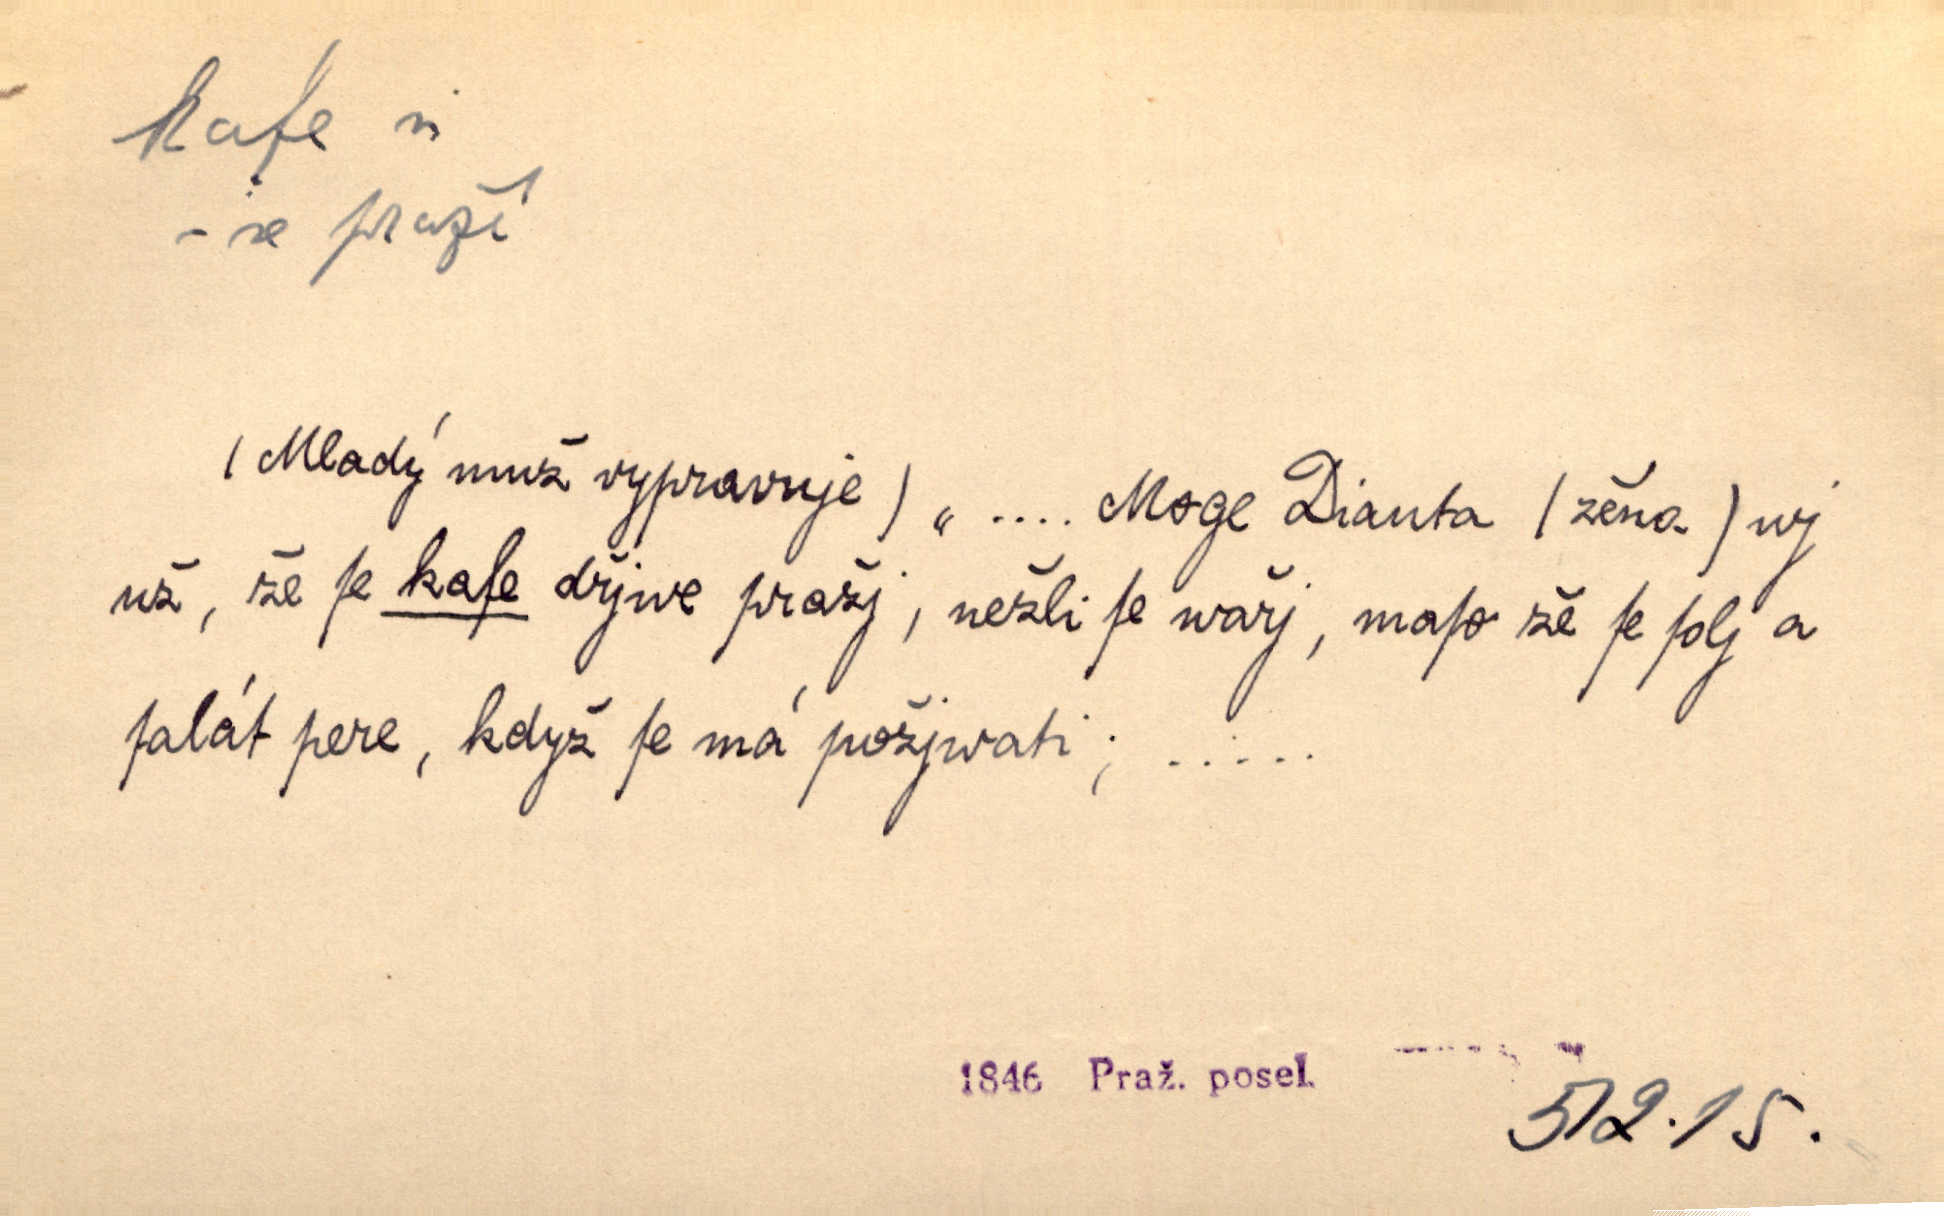 kafe n
- se praží
(Mladý muž vypravuje) „ .... Moge Dianta (žěna) wj
už, že ſe kafe dřjwe pražj, nežli ſe wařj, maſo žě ſe ſolj a
ſalát pere, když ſe má požjwati; .....
1846 Praž. posel.
5/2.15.